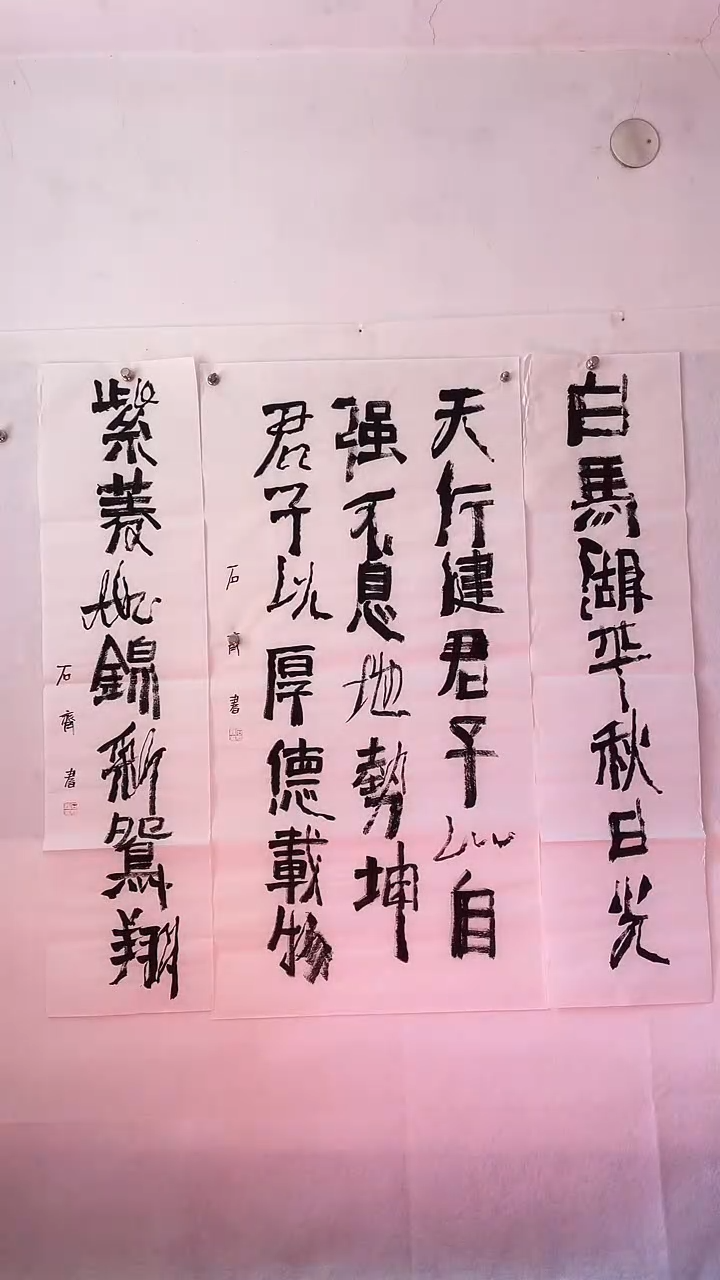 白馬湖平秋日光
天行健君子以自
强不息地勢坤
君子以厚德載物
石齊書
紫菱如錦彩鴛翔
石齊書